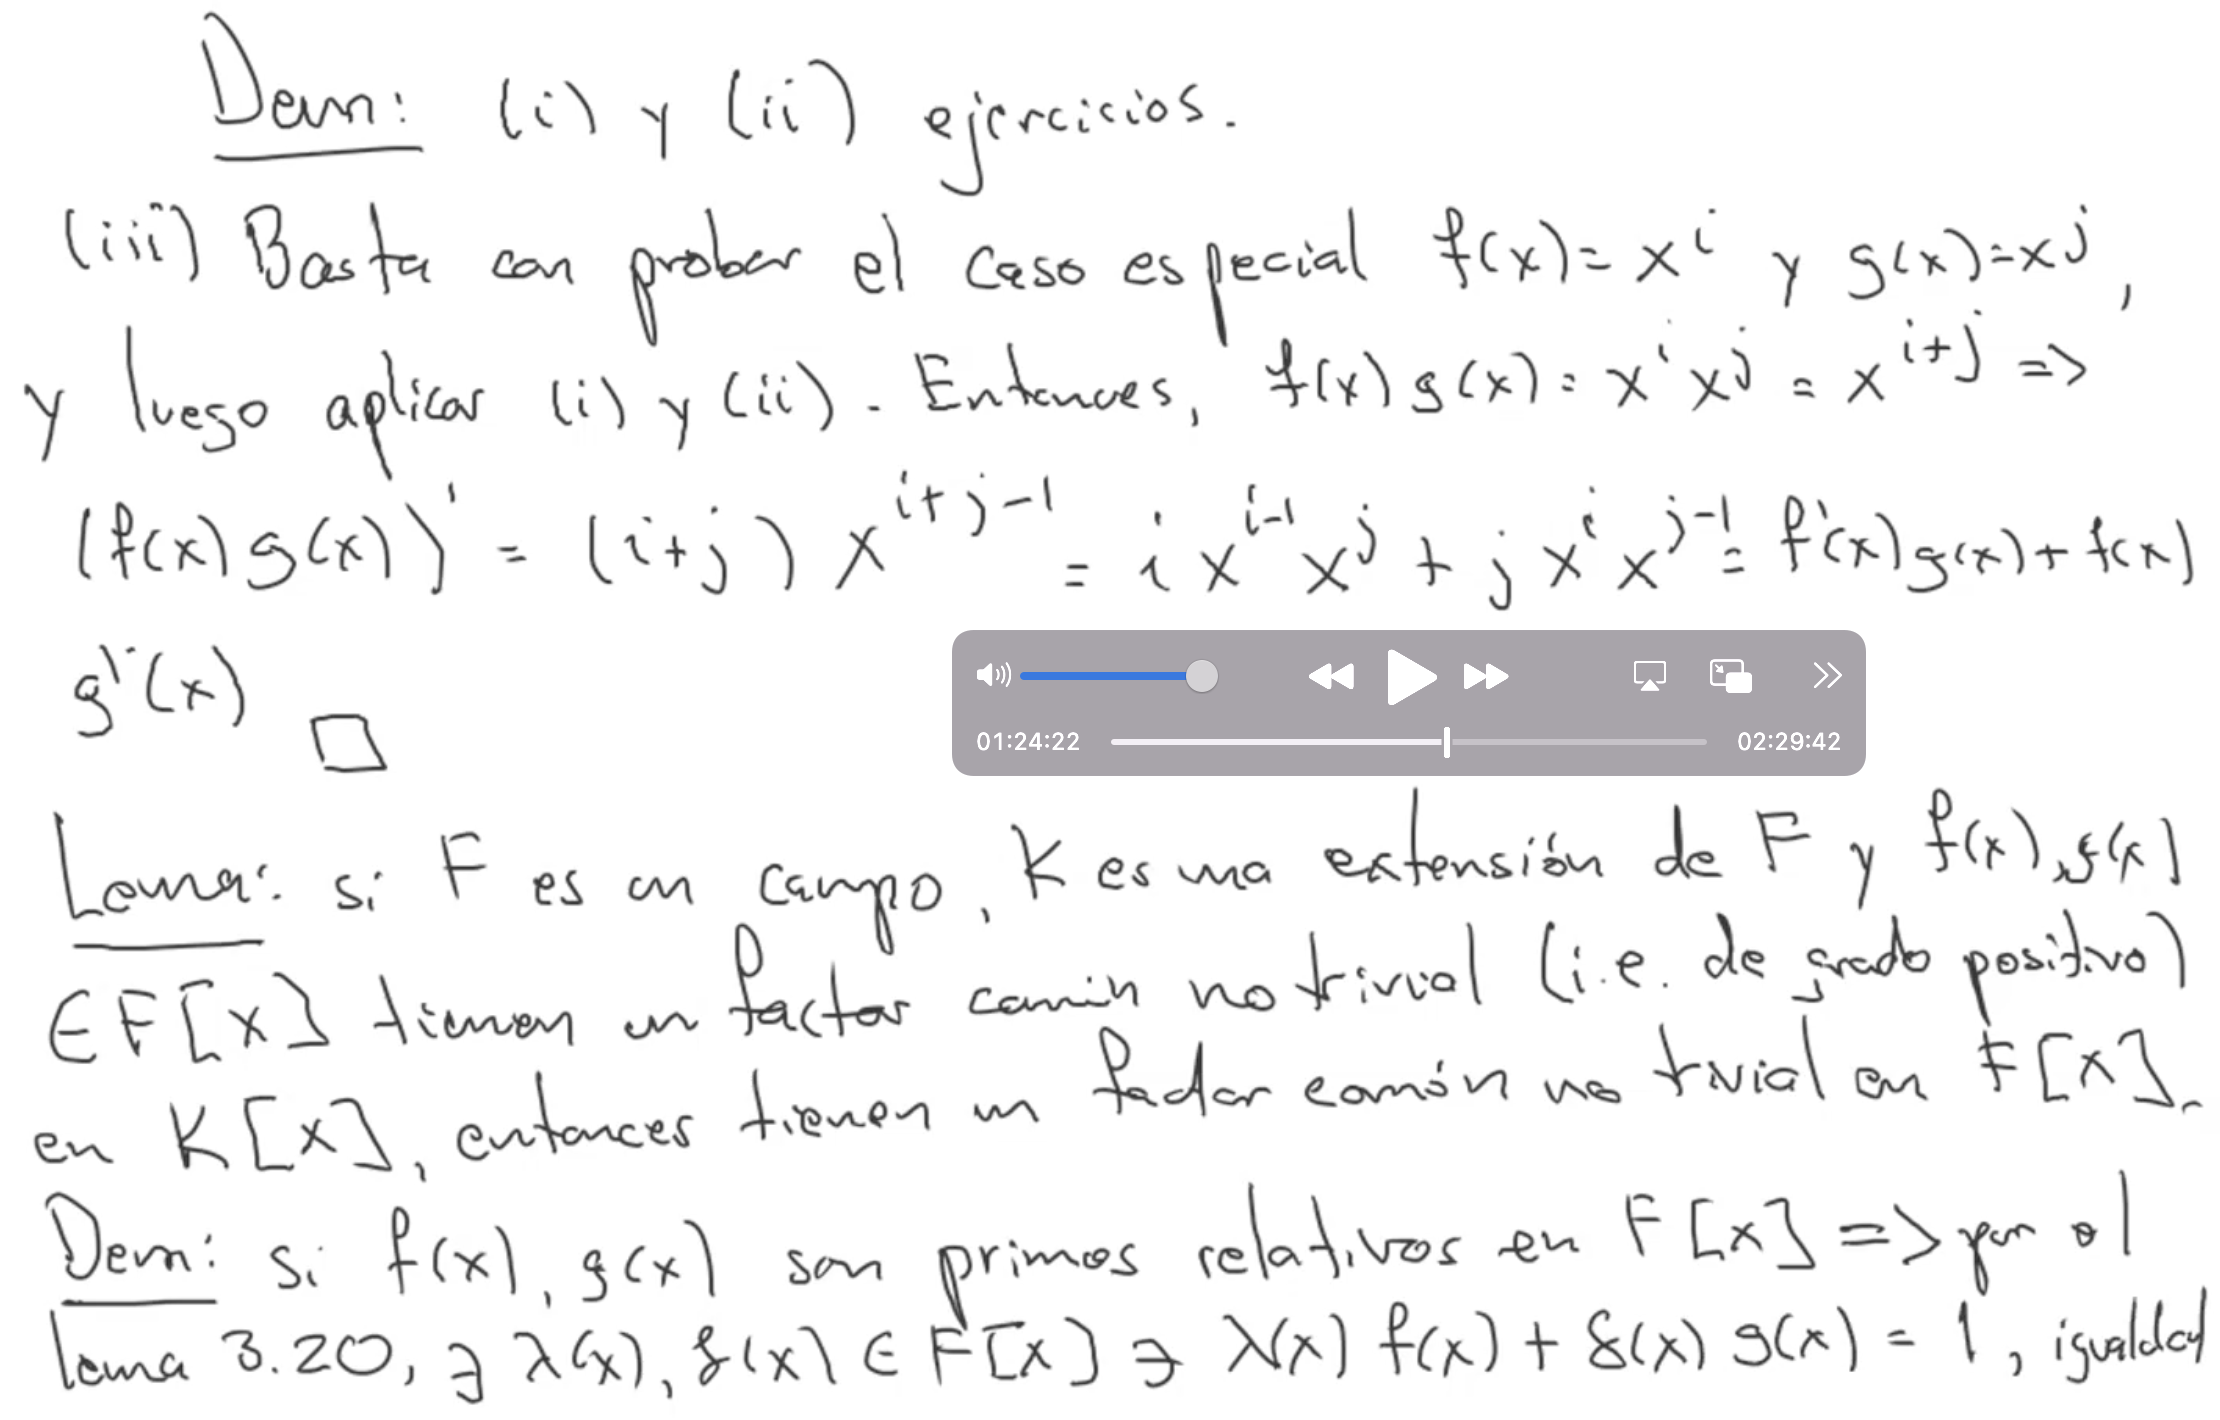 Dem: (i) y (ii) ejercicios.
(iii) Basta con probar el caso especial f(x)= x^i y g(x)=x^j,
y luego aplicar (i) y (ii). Entonces, f(x)g(x)= x^i x^j = x^{i+j} =>
(f(x)g(x))' = (i+j) x^{i+j-1} = i x^{i-1} x^j + j x^i x^{j-1} = f'(x)g(x)+ f(x)
g'(x) □
01:24:22 02:29:42
Lema: si F es un campo, K es una extensión de F y f(x), g(x)
∈ F[x] tienen un factor común no trivial (i.e. de grado positivo)
en K[x], entonces tienen un factor común no trivial en F[x].
Dem: si f(x), g(x) son primos relativos en F[x] => por el
lema 3.20, ∃ λ(x), δ(x) ∈ F[x] ∋ λ(x) f(x) + δ(x) g(x) = 1, igualdad